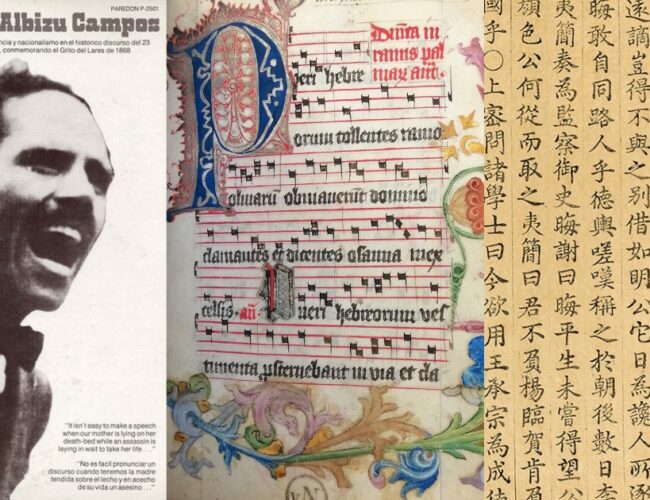 PAREDON P-2501
Albizu Campos
ncia y nacionalismo en el historico discurso del 23
, conmemorando el Grito del Lares de 1868
"It isn't easy to make a speech
when our mother is lying on her
death-bed while an assassin is
laying in wait to take her life . . ."
"No es facil pronunciar un
discurso cuando tenemos la madre
tendida sobre el lecho y en acecho
de su vida un asesino . . ."
Dñica in
ramis pal
mar añ.
Pueri hebre
orum tollentes ramo
oliuarũ obuiauerũt domino
clamantes et dicentes osanna in ex
celsis. añ. Pueri hebreorum ves
timenta psternebant in via et cla
遠謫豈得不與之別借如明公它日為讒人所逐
晦敢自同路人乎德輿嗟嘆稱之於朝後數日李
夷簡奏為監察御史晦謝曰晦平生未嘗得望
顏色公何從而取之夷簡曰君不負楊臨賀肯負
國乎○上密問諸學士曰今欲用王承宗為成